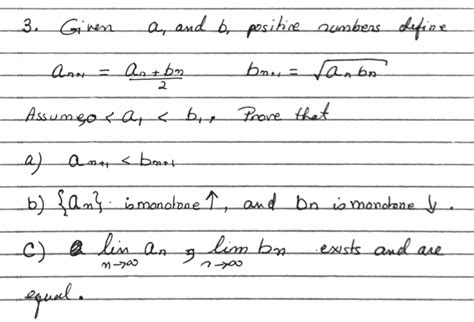 3. Given a, and b, positive numbers define
aₙ₊₁ = (aₙ + bₙ)/2    bₙ₊₁ = √(aₙ bₙ)
Assume 0 < a₁ < b₁. Prove that
a) aₙ₊₁ < bₙ₊₁
b) {aₙ} is monotone ↑, and bₙ is monotone ↓.
c) lim n→∞ aₙ, lim n→∞ bₙ exists and are
equal.